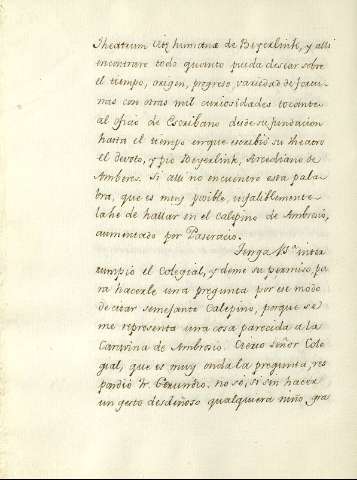 Theatrum vitæ humanæ de Beyerlink, y alli
encontrare todo quanto pueda desear sobre
el tiempo, origen, progreso, variedad de fortu-
nas con otras mil curiosidades tocantes
al oficio de Escribano desde su fundacion
hasta el tiempo en que escribió su theatro
el devoto, y pio Beyerlink, Arcediano de
Amberes. Si alli no encuentro esta pala-
bra, que es muy posible, infaliblemente
la he de hallar en el Calepino de Ambrosio,
aumentado por Paseracio.
Tenga Vsª inter
rumpió el Colegial, y deme su permiso, pa
ra hacerle una pregunta por ese modo
de citar semejante Calepino, porque se
me representa una cosa parecida a la
Caravina de Ambrosio. Creo señor Cole
gial, que es muy onda la pregunta, res
pondió Fr. Gerundio. no só, si sin hacer
un gesto desdeñoso qualquiera niño gra